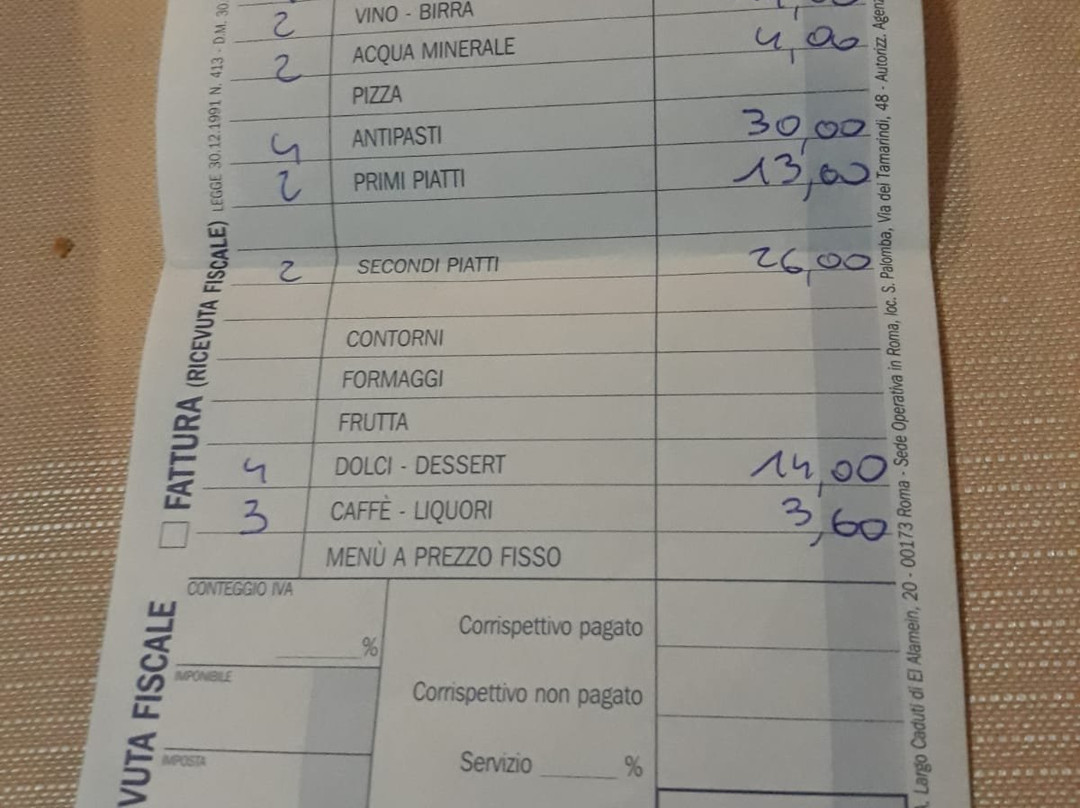 2 VINO - BIRRA
2 ACQUA MINERALE 4,00
PIZZA
4 ANTIPASTI 30,00
2 PRIMI PIATTI 13,00
2 SECONDI PIATTI 26,00
CONTORNI
FORMAGGI
FRUTTA
4 DOLCI - DESSERT 14,00
3 CAFFÈ - LIQUORI 3,60
MENÙ A PREZZO FISSO
CONTEGGIO IVA
%
IMPONIBILE
IMPOSTA
Corrispettivo pagato
Corrispettivo non pagato
Servizio ______ %
FATTURA (RICEVUTA FISCALE) LEGGE 30.12.1991 N. 413 - D.M. 30
VUTA FISCALE
Largo Caduti di El Alamein, 20 - 00173 Roma - Sede Operativa in Roma, loc. S. Palomba, Via dei Tamarindi, 48 - Autorizz.